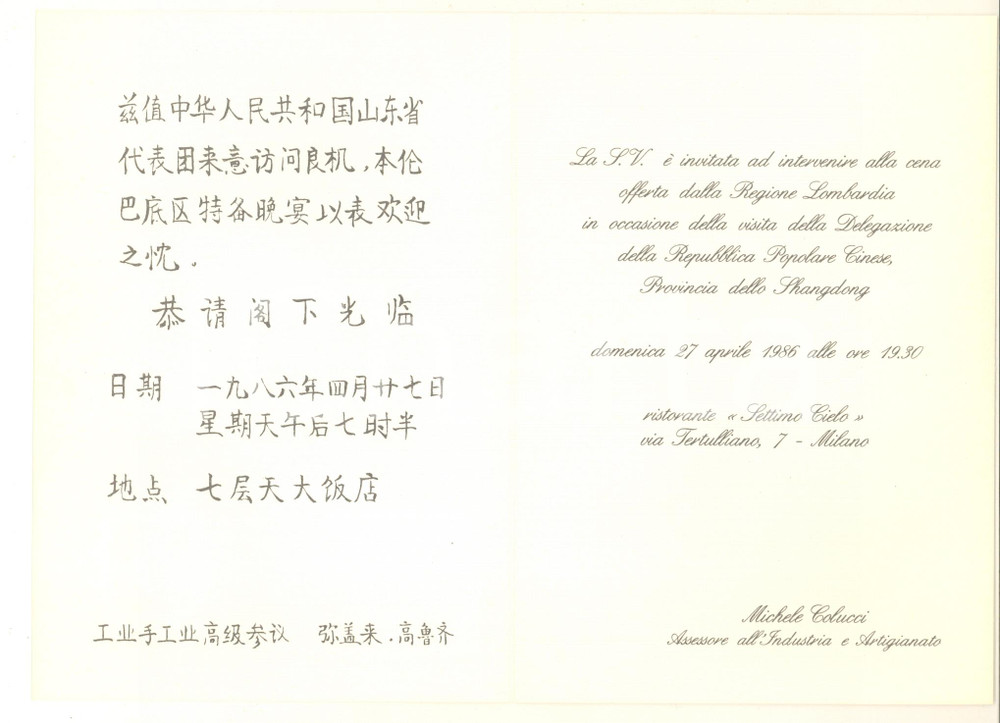 兹值中华人民共和国山东省
代表团来意访问良机,本伦
巴底区特备晚宴以表欢迎
之忱.
恭请阁下光临
日期 一九八六年四月廿七日
星期天午后七时半
地点 七层天大饭店
工业手工业高级参议 弥盖来.高鲁齐
La S.V. è invitata ad intervenire alla cena
offerta dalla Regione Lombardia
in occasione della visita della Delegazione
della Repubblica Popolare Cinese,
Provincia dello Shangdong
domenica 27 aprile 1986 alle ore 19.30
ristorante « Settimo Cielo »
via Tertulliano, 7 - Milano
Michele Colucci
Assessore all'Industria e Artigianato